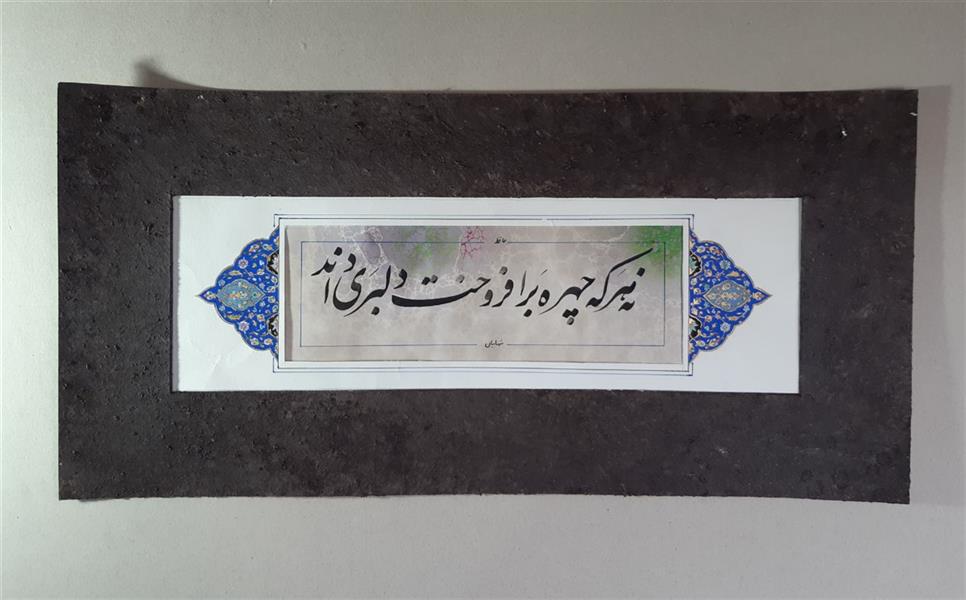 حافظ
نه هر که چهره برافروخت دلبری داند